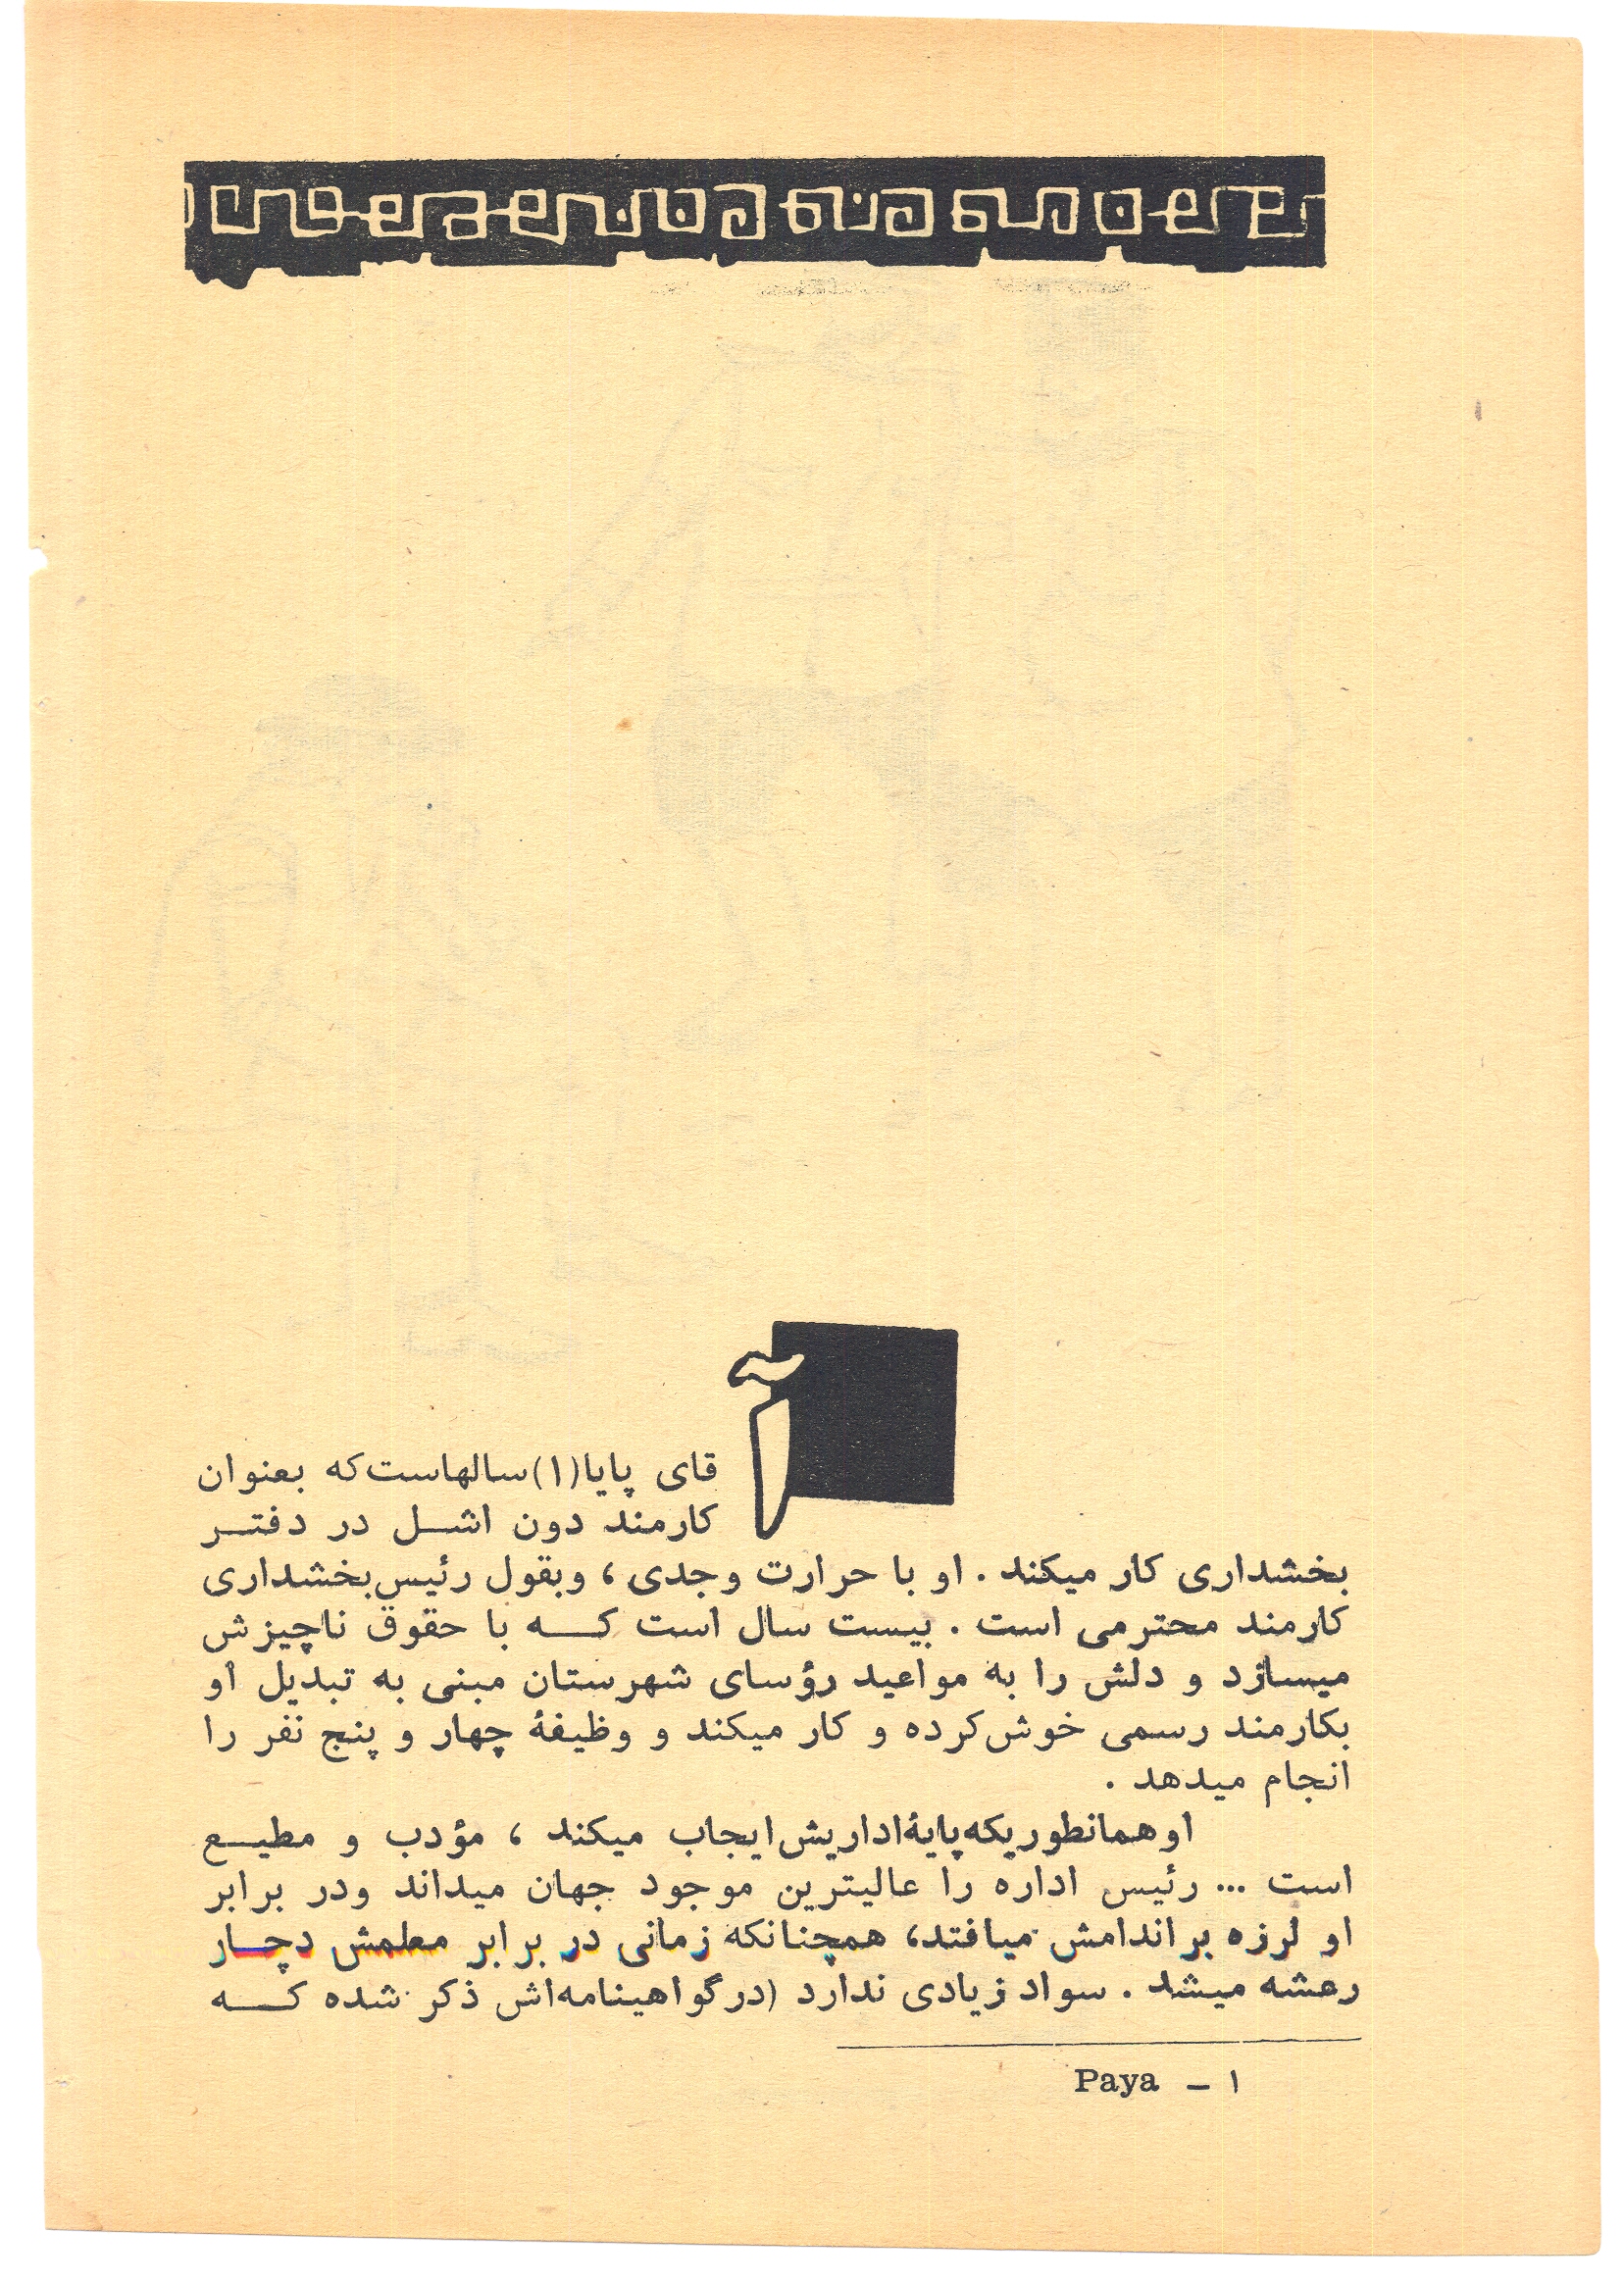 آ
قای پایا(۱)سالهاست‌که بعنوان
کارمند دون اشـل در دفتـر
بخشداری کار میکند . او با حرارت وجدی ، وبقول رئیس‌بخشداری
کارمند محترمی است . بیست سال است کـــه با حقوق ناچیزش
میسازد و دلش را به مواعید رؤسای شهرستان مبنی به تبدیل او
بکارمند رسمی خوش‌کرده و کار میکند و وظیفهٔ چهار و پنج نفر را
انجام میدهد .
اوهمانطوریکه‌پایهٔ‌اداریش‌ایجاب میکند ، مؤدب و مطیــع
است ... رئیس اداره را عالیترین موجود جهان میداند ودر برابر
او لرزه براندامش میافتد، همچنانکه زمانی در برابر معلمش دچـار
رعشه میشد . سواد زیادی ندارد (درگواهینامه‌اش ذکر شده کـــه
۱ – Paya